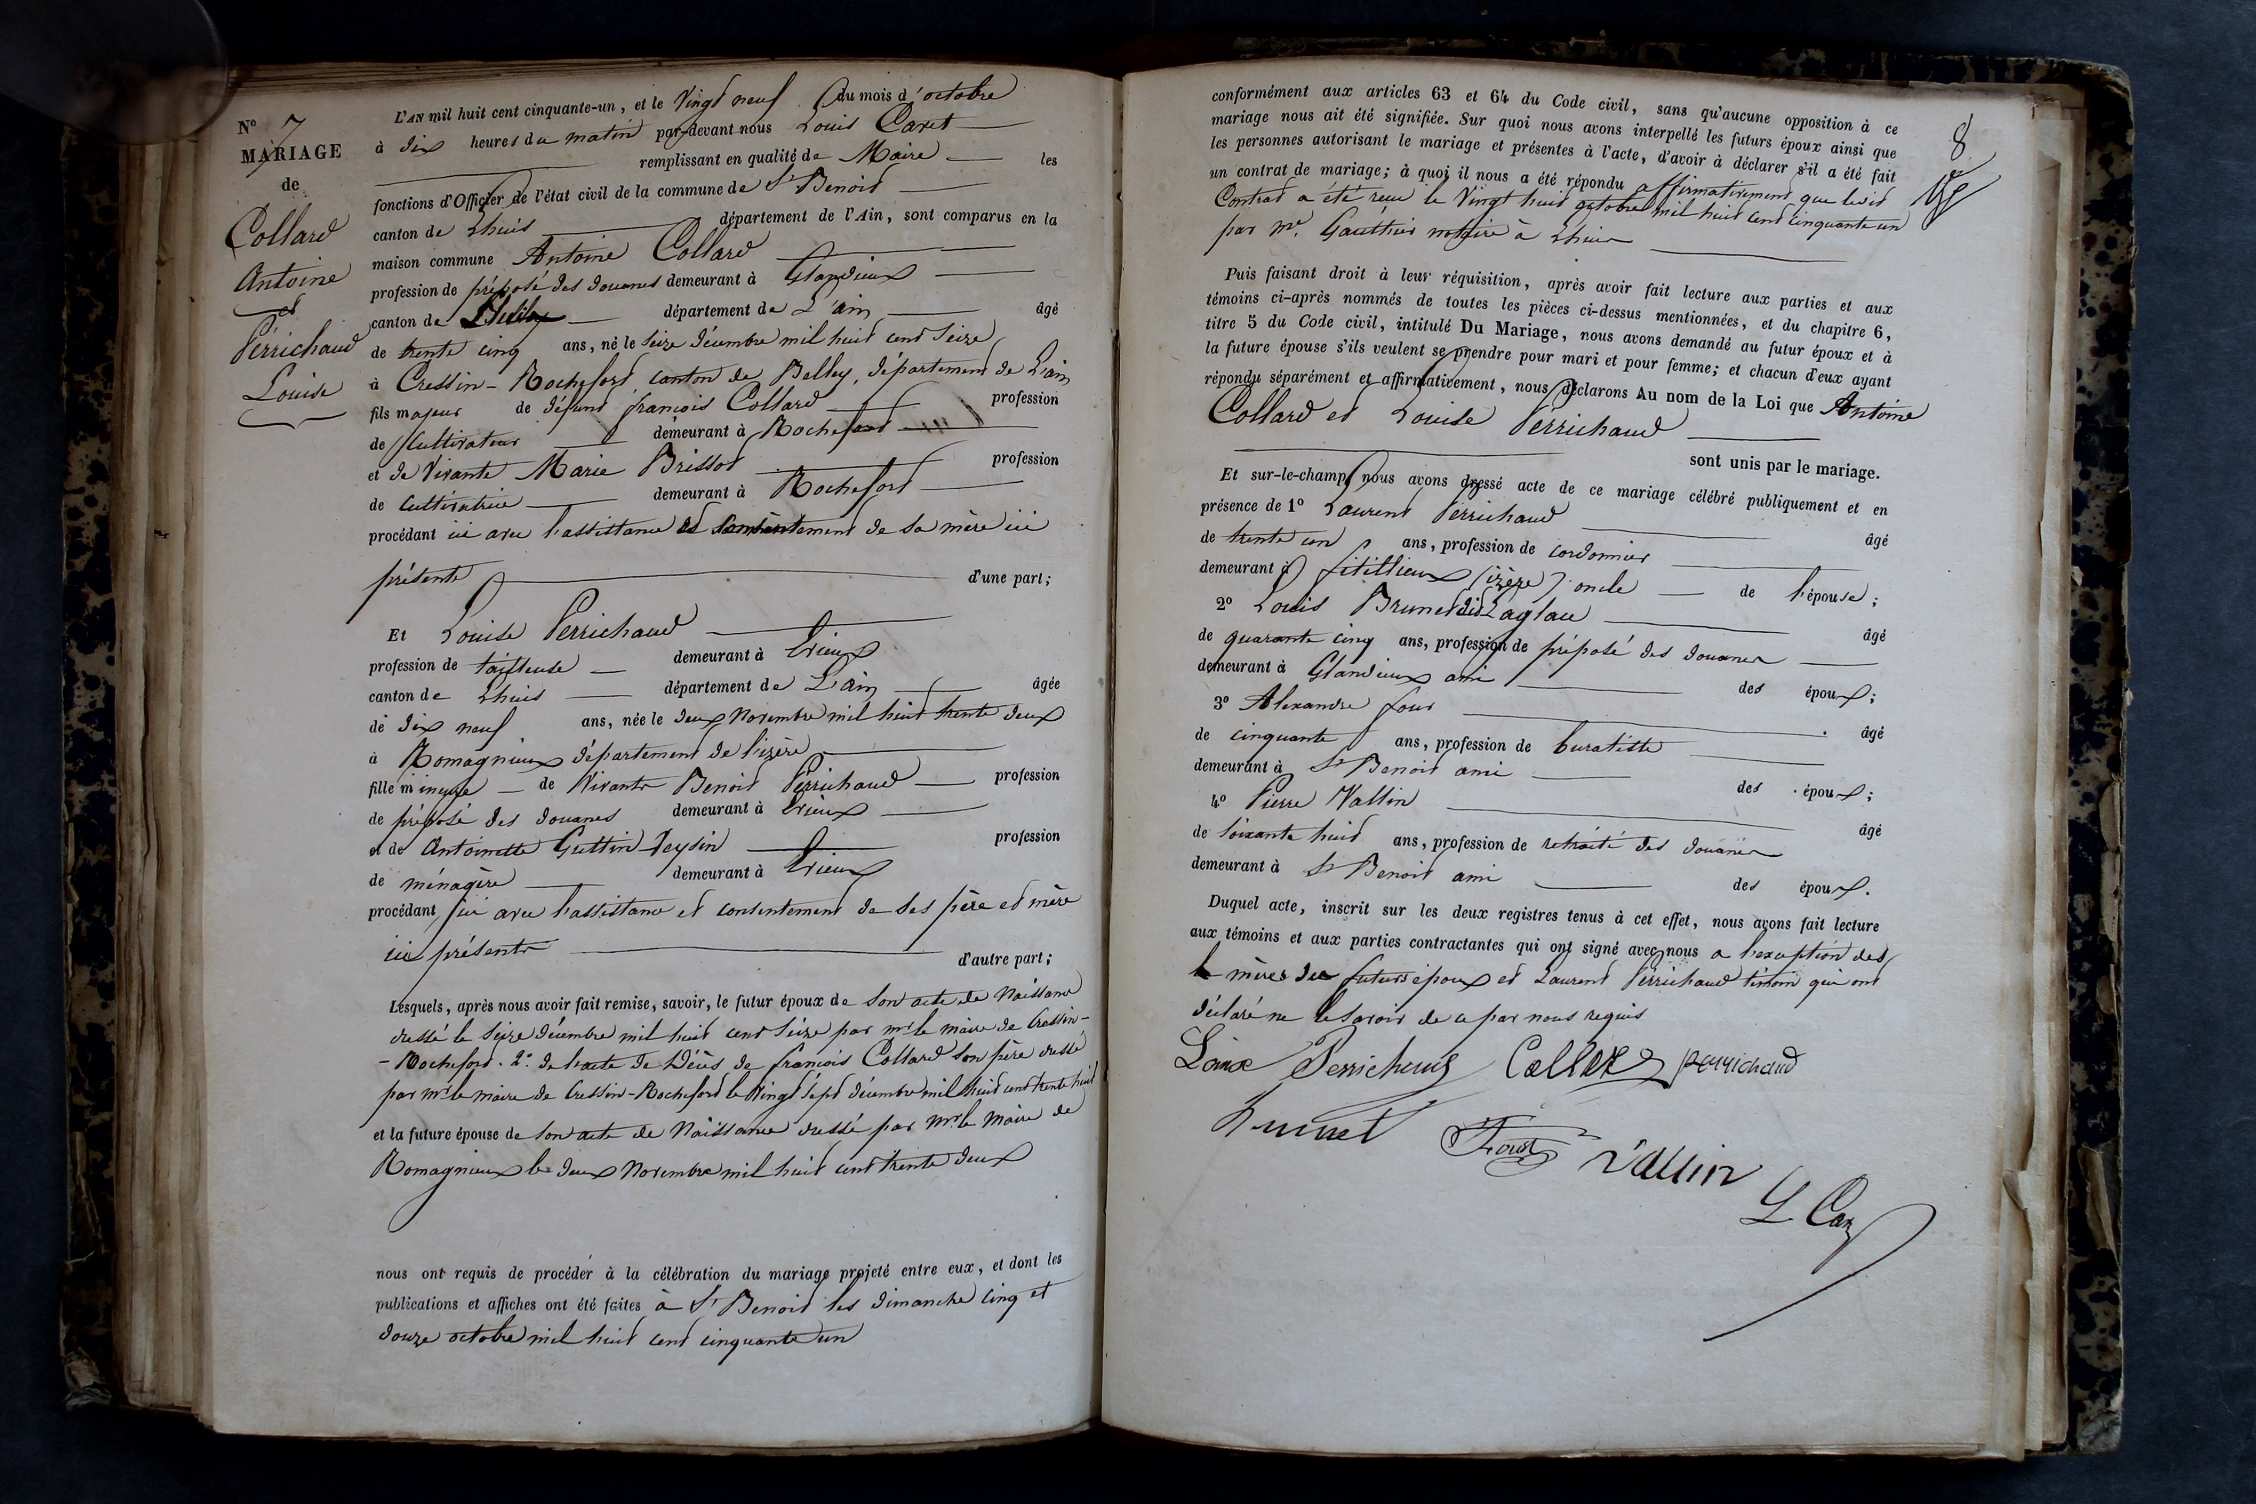 N° 7
MARIAGE
de
Collard
Antoine
et
Perrichaud
Louise
L'AN mil huit cent cinquante-un, et le Vingt neuf du mois d'octobre
à dix heures du matin par-devant nous Louis Caret
remplissant en qualité de Maire les
fonctions d'Officier de l'état civil de la commune de St Benoit
canton de Lhuis département de l'Ain, sont comparus en la
maison commune Antoine Collard
profession de préposé des douanes demeurant à Glandieux
canton de Lhuis département de L'ain âgé
de trente cinq ans, né le Seize décembre mil huit cent Seize
à Cressin-Rochefort canton de Belley, département de L'ain
fils majeur de défunt françois Collard profession
de Cultivateur demeurant à Rochefort
et de Vivante Marie Brissot profession
de Cultivatrice demeurant à Rochefort
procédant ici avec l'assistance et consentement de sa mère ici
présente d'une part;
Et Louise Perrichaud
profession de tailleuse demeurant à Erieux
canton de Lhuis département de L'ain âgée
de dix neuf ans, née le deux Novembre mil huit trente deux
à Romagnieux département de l'izère
fille mineure de Vivants Benoit Perrichaud profession
de préposé des douanes demeurant à Erieux
et de Antoinette Guttin Veysin profession
de ménagère demeurant à Erieux
procédant ici avec l'assistance et consentement de ses père et mère
ici présents d'autre part;
Lesquels, après nous avoir fait remise, savoir, le futur époux de Son acte de Naissance
dressé le Seize décembre mil huit cent Seize par mr le maire de Cressin-
-Rochefort. 2° de l'acte de Décès de françois Collard son père dressé
par mr le maire de Cressin-Rochefort le Vingt sept décembre mil huit cent trente huit
et la future épouse de Son acte de Naissance dressé par mr le maire de
Romagnieux le deux Novembre mil huit cent trente deux
nous ont requis de procéder à la célébration du mariage projeté entre eux, et dont les
publications et affiches ont été faites à St Benoit les dimanche cinq et
douze octobre mil huit cent cinquante un
8
conformément aux articles 63 et 64 du Code civil, sans qu'aucune opposition à ce
mariage nous ait été signifiée. Sur quoi nous avons interpellé les futurs époux ainsi que
les personnes autorisant le mariage et présentes à l'acte, d'avoir à déclarer s'il a été fait
un contrat de mariage; à quoi il nous a été répondu affirmativement que ledit
Contrat a été reçu le Vingt huit octobre mil huit cent cinquante un
par me. Gauthier notaire à Lhuis
Puis faisant droit à leur réquisition, après avoir fait lecture aux parties et aux
témoins ci-après nommés de toutes les pièces ci-dessus mentionnées, et du chapitre 6,
titre 5 du Code civil, intitulé Du Mariage, nous avons demandé au futur époux et à
la future épouse s'ils veulent se prendre pour mari et pour femme; et chacun d'eux ayant
répondu séparément et affirmativement, nous déclarons Au nom de la Loi que Antoine
Collard et Louise Perrichaud
sont unis par le mariage.
Et sur-le-champ nous avons dressé acte de ce mariage célébré publiquement et en
présence de 1° Laurent Perrichaud âgé
de trente un ans, profession de cordonnier
demeurant à fitillieux (izère) oncle de l'épouse;
2° Louis Brunet dit Laglace âgé
de quarante cinq ans, profession de préposé des douanes
demeurant à Glandieux ami des époux;
3° Alexandre four âgé
de cinquante ans, profession de buraliste
demeurant à St Benoit ami des époux;
4° Pierre Vallin âgé
de soixante huit ans, profession de retraité des douanes
demeurant à St Benoit ami des époux.
Duquel acte, inscrit sur les deux registres tenus à cet effet, nous avons fait lecture
aux témoins et aux parties contractantes qui ont signé avec nous a l'exception des
mères des futurs époux et Laurent Perrichaud témoin qui ont
déclaré ne le savoir de ce par nous requis
Louise Perrichaud Collard perrichaud
Brunet Four Vallin
L Caret